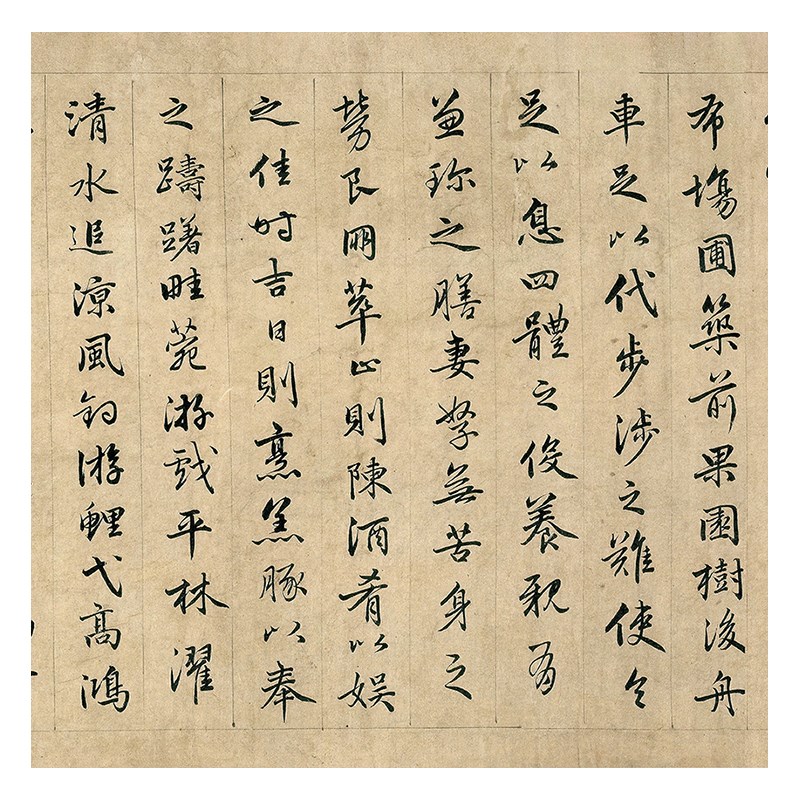 布塲圃築前果園樹後舟
車足以代步涉之難使令
足以息四體之役養親有
兼珍之膳妻孥無苦身之
勞良朋萃止則陳酒肴以娱
之佳时吉日則烹羔豚以奉
之躊躇畦菀游戲平林濯
清水追涼風釣游鯉弋高鴻